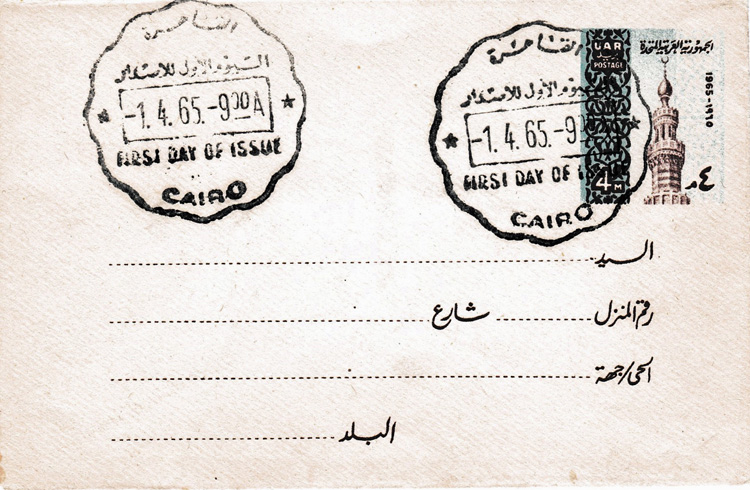 القاهرة
اليوم الأول للإصدار
-1. 4. 65. -9⁰⁰ A
FIRST DAY OF ISSUE
CAIRO
القاهرة
اليوم الأول للإصدار
-1. 4. 65. -9
FIRST DAY OF ISSUE
CAIRO
UAR
POSTAGE
4M
الجمهورية العربية المتحدة
1965-١٩٦٥
٤ م
السيد
رقم المنزل شارع
الحى/جهة
البلد